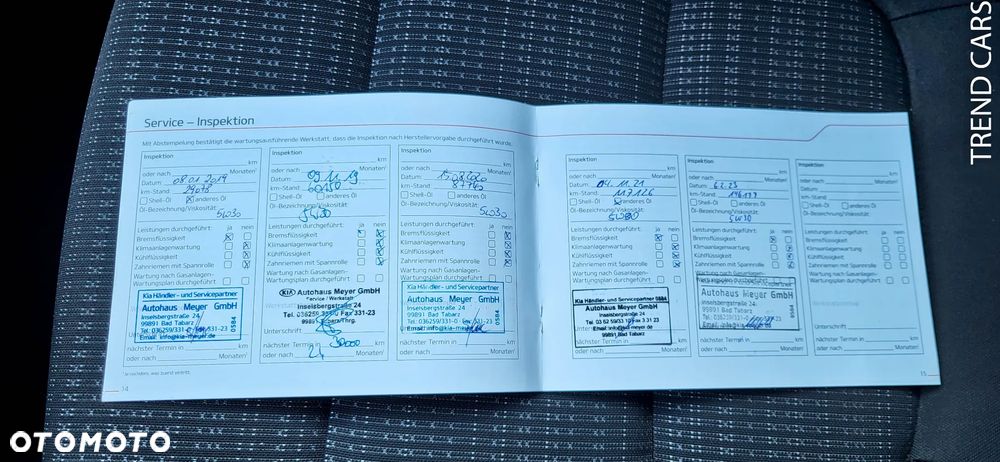 Service – Inspektion
Mit Abstempelung bestätigt die wartungsausführende Werkstatt, dass die Inspektion nach Herstellervorgabe durchgeführt wurde.
Inspektion
km
oder nach Monaten¹
Datum 08.01.2019
km-Stand 29078
Shell-Öl anderes Öl
Öl-Bezeichnung/Viskosität
5W30
Leistungen durchgeführt: ja nein
Bremsflüssigkeit
Klimaanlagenwartung
Kühlflüssigkeit
Zahnriemen mit Spannrolle
Wartung nach Gasanlagen-
Wartungsplan durchgeführt
Kia Händler- und Servicepartner
Autohaus Meyer GmbH
Inselsbergstraße 24
99891 Bad Tabarz
Tel. 036259/331-0 · Fax 331-23
Email: info@kia-meyer.de
0584
nächster Termin in km
oder nach Monaten¹
¹ je nachdem, was zuerst eintritt.
14
Inspektion
km
oder nach Monaten¹
Datum 09.11.19
km-Stand 60150
Shell-Öl anderes Öl
Öl-Bezeichnung/Viskosität
5W30
Leistungen durchgeführt: ja nein
Bremsflüssigkeit
Klimaanlagenwartung
Kühlflüssigkeit
Zahnriemen mit Spannrolle
Wartung nach Gasanlagen-
Wartungsplan durchgeführt
KIA Autohaus Meyer GmbH
Service / Werkstatt
Inselsbergstraße 24
Tel. 036259 Fax 331-23
Unterschrift
nächster Termin in km
oder nach 24 Monaten¹
Inspektion
km
oder nach Monaten¹
Datum
km-Stand 87762
Shell-Öl anderes Öl
Öl-Bezeichnung/Viskosität
5W30
Leistungen durchgeführt: ja nein
Bremsflüssigkeit
Klimaanlagenwartung
Kühlflüssigkeit
Zahnriemen mit Spannrolle
Wartung nach Gasanlagen-
Wartungsplan durchgeführt
Kia Händler- und Servicepartner
Autohaus Meyer GmbH
Inselsbergstraße 24
99891 Bad Tabarz
Tel. 036259/331-0 · Fax 331-23
0584
nächster Termin in km
oder nach Monaten¹
Inspektion
km
oder nach Monaten¹
Datum 04.11.21
km-Stand 117126
Shell-Öl anderes Öl
Öl-Bezeichnung/Viskosität
5W30
Leistungen durchgeführt: ja nein
Bremsflüssigkeit
Klimaanlagenwartung
Kühlflüssigkeit
Zahnriemen mit Spannrolle
Wartung nach Gasanlagen-
Wartungsplan durchgeführt
Kia Händler- und Servicepartner 0584
Autohaus Meyer GmbH
Inselsbergstraße 24
99891 Bad Tabarz
Unterschrift
nächster Termin in km
oder nach Monaten¹
Inspektion
km
oder nach Monaten¹
Datum 6.2.23
km-Stand
Shell-Öl anderes Öl
Öl-Bezeichnung/Viskosität
5W30
Leistungen durchgeführt: ja nein
Bremsflüssigkeit
Klimaanlagenwartung
Kühlflüssigkeit
Zahnriemen mit Spannrolle
Wartung nach Gasanlagen-
Autohaus Meyer GmbH
Inselsbergstraße 24
99891 Bad Tabarz
nächster Termin in km
oder nach Monaten¹
Inspektion
km
oder nach Monaten¹
Datum
km-Stand
Shell-Öl anderes Öl
Öl-Bezeichnung/Viskosität
Leistungen durchgeführt: ja nein
Bremsflüssigkeit
Klimaanlagenwartung
Kühlflüssigkeit
Zahnriemen mit Spannrolle
Wartung nach Gasanlagen-
Wartungsplan durchgeführt
Unterschrift
nächster Termin in km
oder nach Monaten¹
15
TREND CARS
OTOMOTO